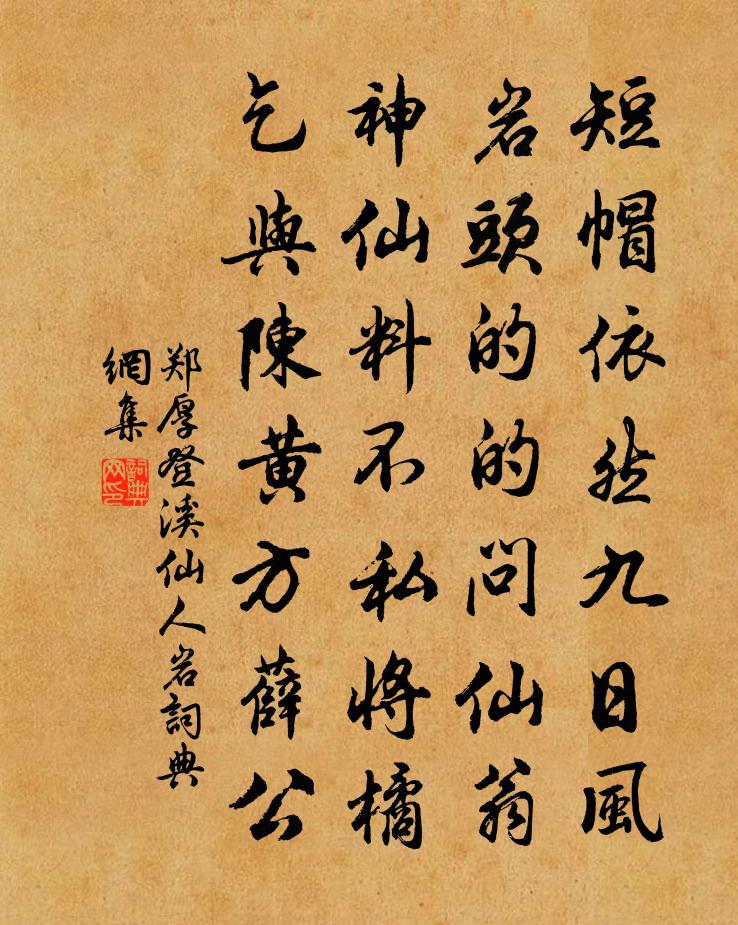 短帽依然九日風
岩頭的的問仙翁
神仙料不私將橘
乞與陳黄方薜公
郑厚登溪仙人岩詞典
網集
詞典
网印